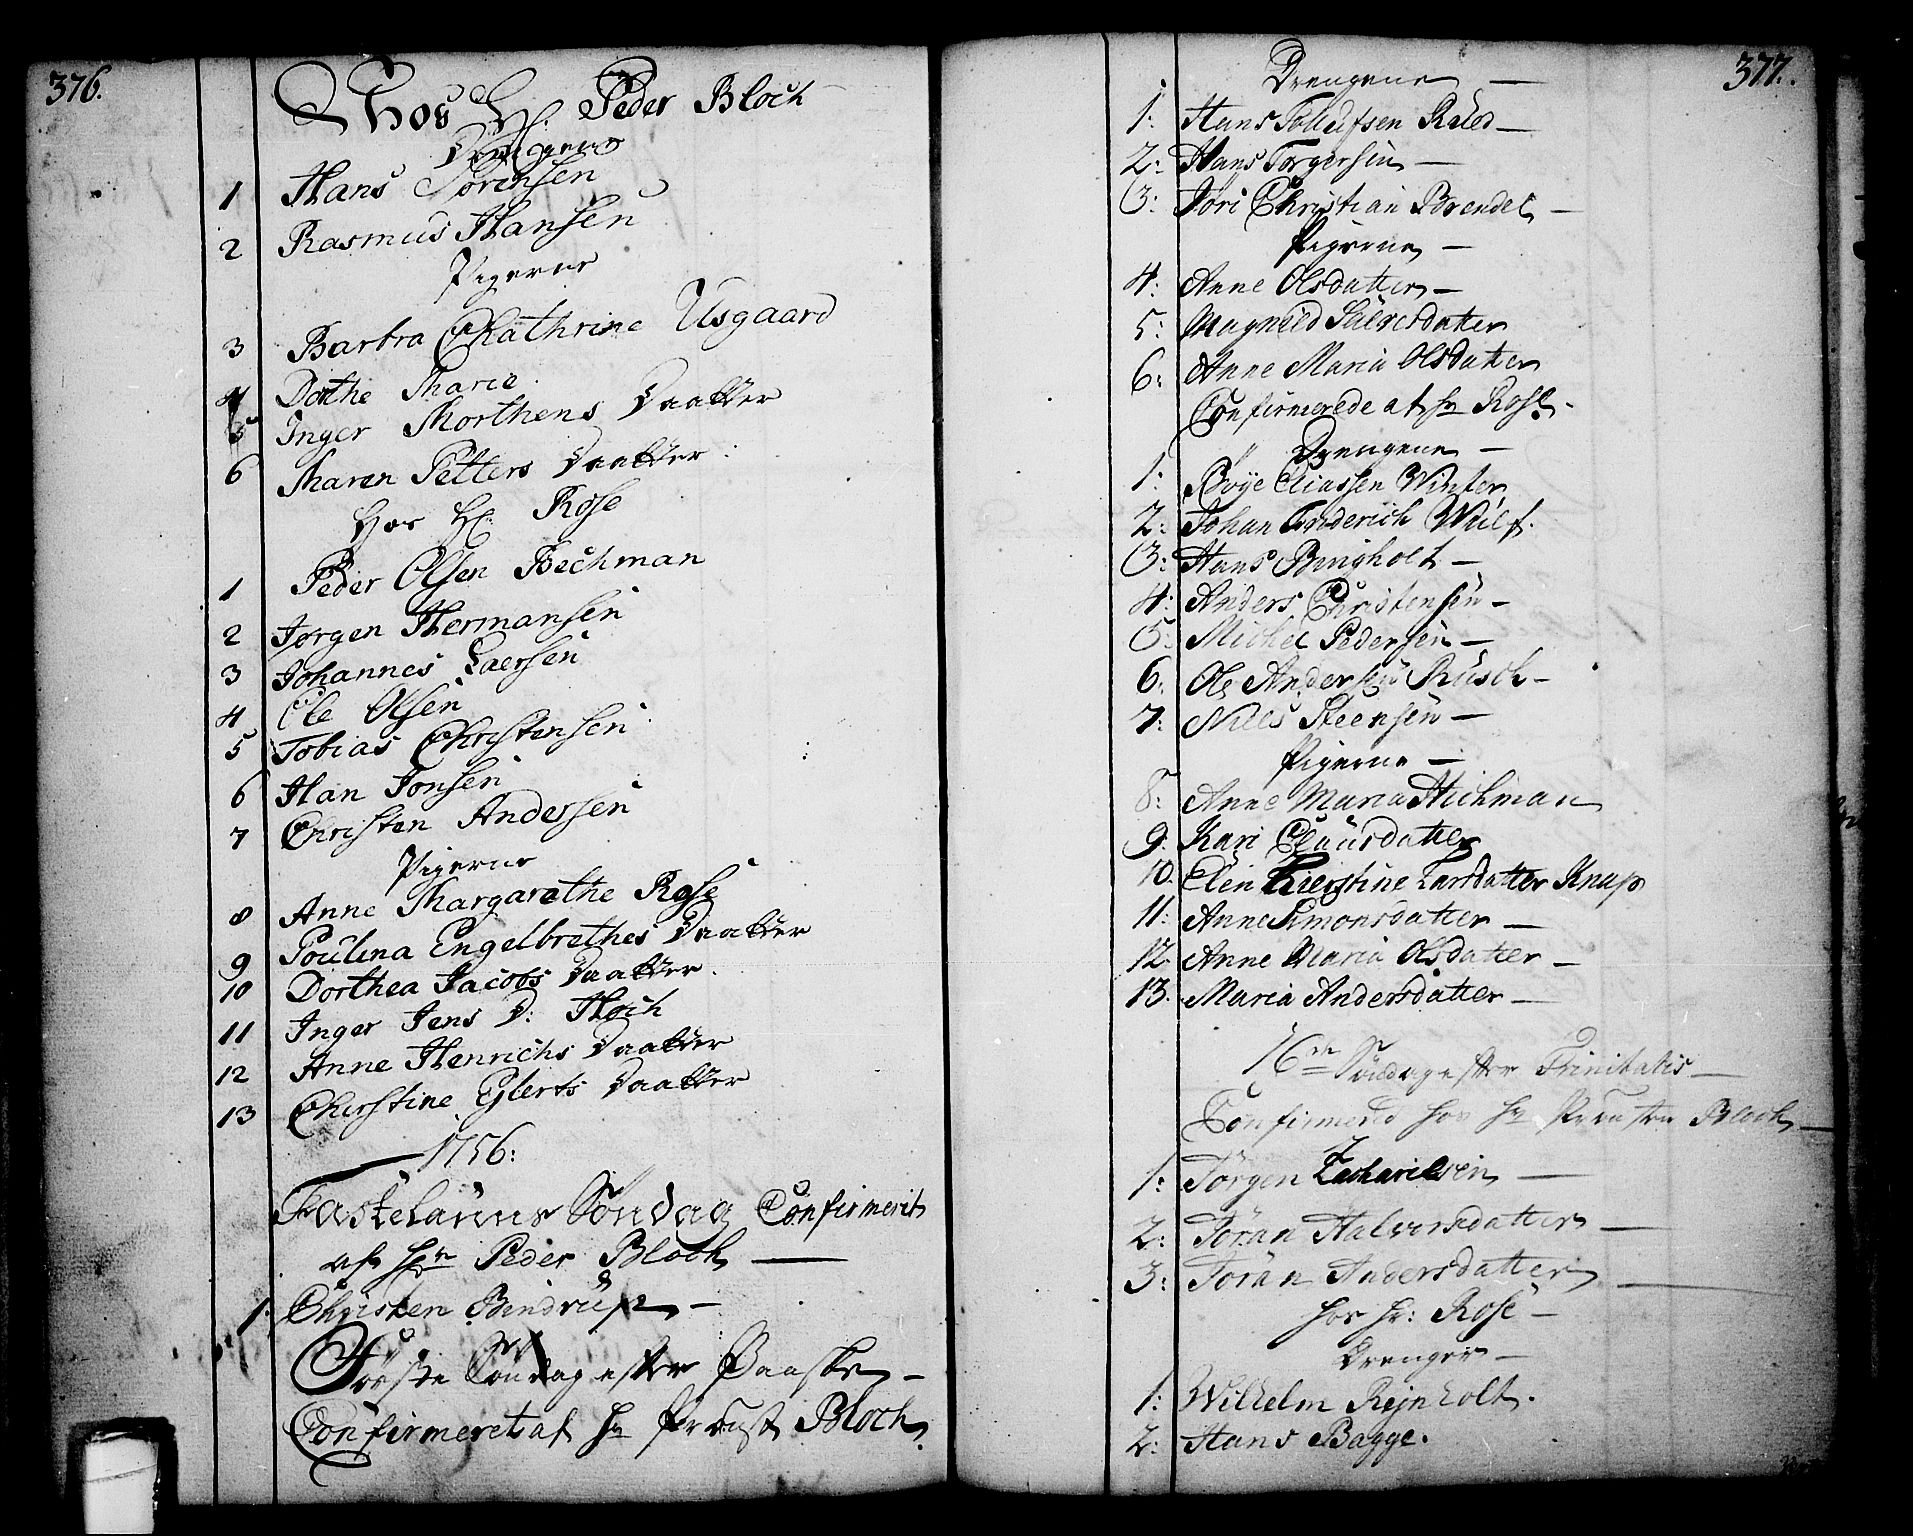 376.
Hos H. Peder Bloch
Drengene
1 Hans Sörensen
2 Rasmus Hansen
Pigerne
3 Barbra Chathrine Usgaard
4 Dorthe Marie
5 Inger Morthens Daatter
6 Maren Petters Daatter
Hos H. Rose
1 Peder Olsen Bechman
2 Jørgen Hermansen
3 Johannes Laersen
4 Ole Olsen
5 Tobias Christensen
6 Han Jonsen
7 Christen Andersen
Pigerne
8 Anne Margarethe Rose
9 Poulina Engelbrethes Daatter
10 Dorthea Jacobs Daatter
11 Inger Jens D. Hoch
12 Anne Henrichs Daatter
13 Cherstine Eylerts Daatter
1756:
Fastelauns Søndag Confirmerit
af hr Peder Bloch
1: Christen Bendrup
Første Søndag efter Paaske
Confirmeret af hr Provst Bloch
377.
Drengene
1: Hans Tollufsen Ruud
2: Hans Torgersen
3: Jöri Christian Brendel
Pigerne
4: Anne Olsdatter
5: Magnild Salvesdatter
6: Anne Maria Olsdatter
Confirmerede af hr Rose
Drengene
1: Böye Eliassen Winter
2: Johan Friderich Wulf.
3: Hans Bringholt
4: Anders Christensen
5: Michel Pedersen
6: Ole Andersen Rusch
7: Niels Steensen
Pigerne
8: Anne Maria Hichman
9: Kari Claursdatter
10. Elen Kierstine Larsdatter Knup
11: Anne Simonsdatter
12 Anne Maria Olsdatter
13. Maria Andersdatter
16de Søndag efter Trinitatis
Confirmered hos hr Provsten Bloch
1: Jörgen Zachariesen
2: Jöran Halversdatter
3: Jöran Andersdatter
hos hr: Rose
Drenger
1: Wilhelm Rejnholt.
2: Hans Bagge.